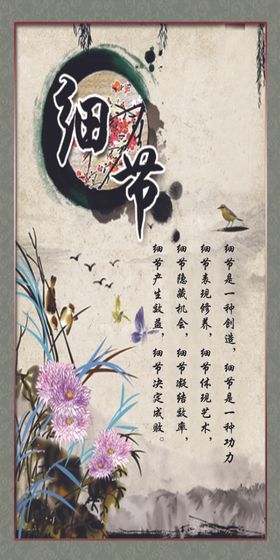 细节
细节是一种创造，细节是一种功力
细节表现修养，细节体现艺术，
细节隐藏机会，细节凝结效率，
细节产生效益，细节决定成败。